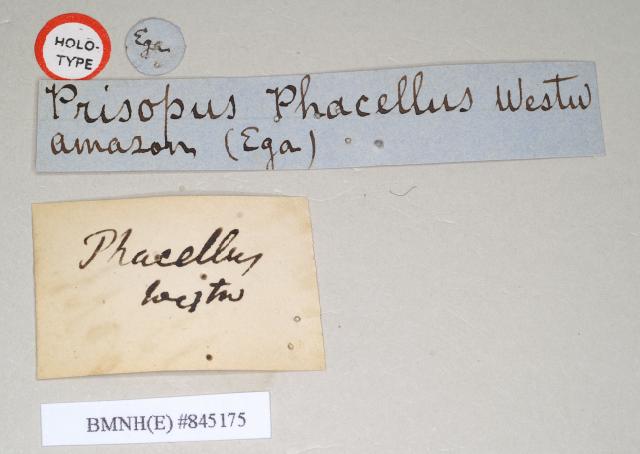 HOLO-
TYPE
Ega
Prisopus Phacellus Westw
amazon (Ega)
Phacellus
Westw
BMNH(E) #845175